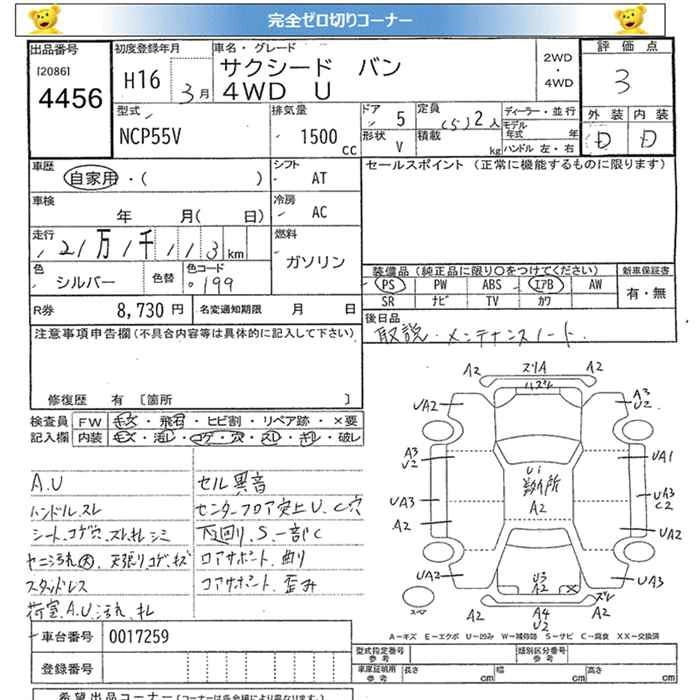 完全ゼロ切りコーナー
出品番号 初度登録年月 車名・グレード 2WD・4WD 評価点
[2086]
4456
H16 3月
サクシード バン
4WD U
3
型式 排気量 ドア 定員 ディーラー・並行 外装 内装
NCP55V 1500cc 5 (5)2人 モデル年式 年 D D
形状 V 積載 kg ハンドル 左・右
車歴 自家用・( ) シフト AT セールスポイント (正常に機能するものに限ります)
車検 年 月( 日) 冷房 AC
走行 21万1千113km 燃料 ガソリン
色 シルバー 色替 色コード 199
装備品(純正品に限り○をつけてください) 新車保証書
PS PW ABS エアB AW 有・無
SR ナビ TV カワ
R券 8,730円 名変通知期限 月 日
後日品
取説・メンテナンスノート
注意事項申告欄(不具合内容等は具体的に記入して下さい)
修復歴 有 〔箇所 〕
検査員記入欄 FW キズ・飛石・ヒビ割・リペア跡・×要
内装 キズ・汚レ・コゲ・穴・スレ・キレ・破レ
A.U セル異音
ハンドルスレ センターフロア突上U、C穴
シート、コゲ穴スレ、キレ、シミ 下回り、S、一部C
ヤニ汚れ大、天張りコゲ、キズ ロアサポート、曲り
スタッドレス コアサポート、歪み
荷室、A.U、汚れ、キレ
A2 ズリA A2
ハズレ
UA2 A3 U2
A3 U2 UA1
Ui
A2
UA3 UA3 C2
A2 UA2
UA2 U3 A2 UA3
スペア A2 A4 U2 ズレ A2
A−キズ E−エクボ U−凹み W−補修跡 S−サビ C−腐食 XX−交換済
車台番号 0017259
登録番号
型式指定番号 参考 類別区分番号 参考
車庫証明 参考 長さ cm 幅 cm 高さ cm
希望出品コーナー